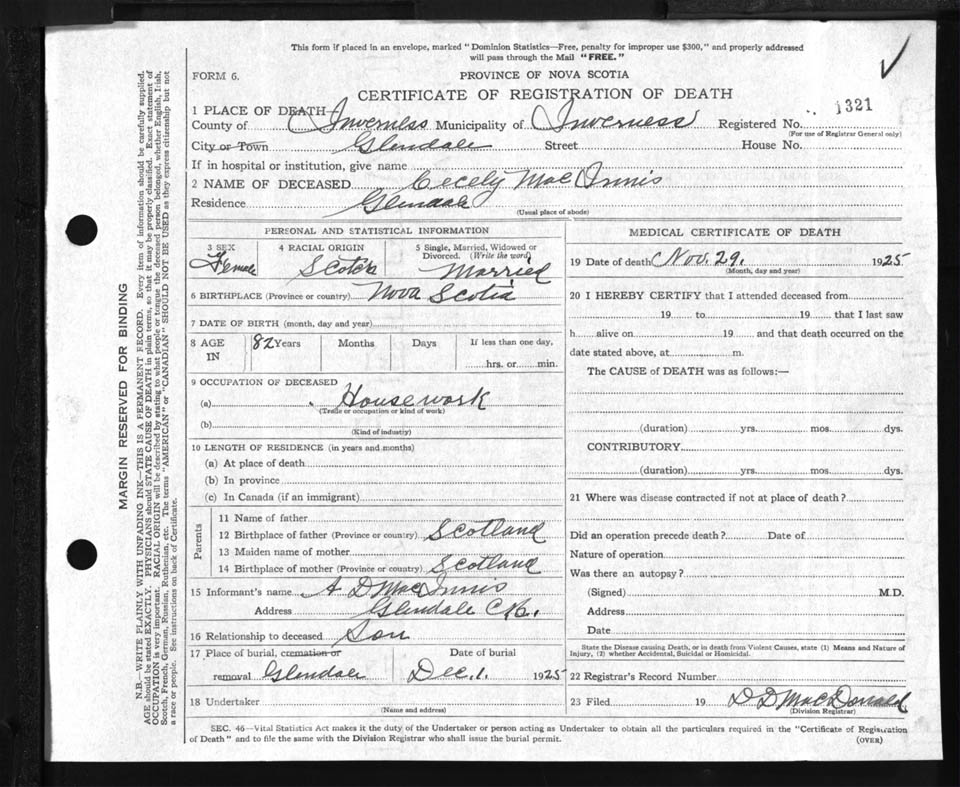 This form if placed in an envelope, marked "Dominion Statistics—Free, penalty for improper use $300," and properly addressed
will pass through the Mail "FREE."
FORM 6.
PROVINCE OF NOVA SCOTIA
CERTIFICATE OF REGISTRATION OF DEATH
1321
1 PLACE OF DEATH
County of Inverness Municipality of Inverness Registered No.
(For use of Registrar General only)
City or Town Glendale Street House No.
If in hospital or institution, give name
2 NAME OF DECEASED Cecely MacInnis
Residence Glendale
(Usual place of abode)
PERSONAL AND STATISTICAL INFORMATION
3 SEX 4 RACIAL ORIGIN 5 Single, Married, Widowed or
Divorced. (Write the word)
Female Scotch Married
6 BIRTHPLACE (Province or country) Nova Scotia
7 DATE OF BIRTH (month, day and year)
8 AGE IN 82 Years Months Days If less than one day,
hrs. or min.
9 OCCUPATION OF DECEASED
(a) Housework
(Trade or occupation or kind of work)
(b)
(Kind of industry)
10 LENGTH OF RESIDENCE (in years and months)
(a) At place of death
(b) In province
(c) In Canada (if an immigrant)
Parents
11 Name of father
12 Birthplace of father (Province or country) Scotland
13 Maiden name of mother
14 Birthplace of mother (Province or country) Scotland
15 Informant's name A D MacInnis
Address Glendale C.B.
16 Relationship to deceased Son
17 Place of burial, cremation or Date of burial
removal Glendale Dec. 1. 1925
18 Undertaker
(Name and address)
MEDICAL CERTIFICATE OF DEATH
19 Date of death Nov. 29. 1925
(Month, day and year)
20 I HEREBY CERTIFY that I attended deceased from
19 to 19 that I last saw
h alive on 19 and that death occurred on the
date stated above, at m.
The CAUSE of DEATH was as follows:—
(duration) yrs. mos. dys.
CONTRIBUTORY
(duration) yrs. mos. dys.
21 Where was disease contracted if not at place of death?
Did an operation precede death? Date of
Nature of operation
Was there an autopsy?
(Signed) M.D.
Address
Date
State the Disease causing Death, or in death from Violent Causes, state (1) Means and Nature of
Injury, (2) whether Accidental, Suicidal or Homicidal.
22 Registrar's Record Number
23 Filed 19 D D MacDonald
(Division Registrar)
SEC. 46—Vital Statistics Act makes it the duty of the Undertaker or person acting as Undertaker to obtain all the particulars required in the "Certificate of Registration
of Death" and to file the same with the Division Registrar who shall issue the burial permit.
(OVER)
MARGIN RESERVED FOR BINDING
N.B.—WRITE PLAINLY WITH UNFADING INK—THIS IS A PERMANENT RECORD. Every item of information should be carefully supplied.
AGE should be stated EXACTLY. PHYSICIANS should STATE CAUSE OF DEATH in plain terms, so that it may be properly classified. Exact statement of
OCCUPATION is very important. RACIAL ORIGIN will be described by stating to what people or tongue the deceased person belonged, whether English, Irish,
Scotch, French, German, Russian, Ruthenian, etc. The terms "AMERICAN" or "CANADIAN" SHOULD NOT BE USED as they express citizenship but not
a race or people. See instructions on back of Certificate.